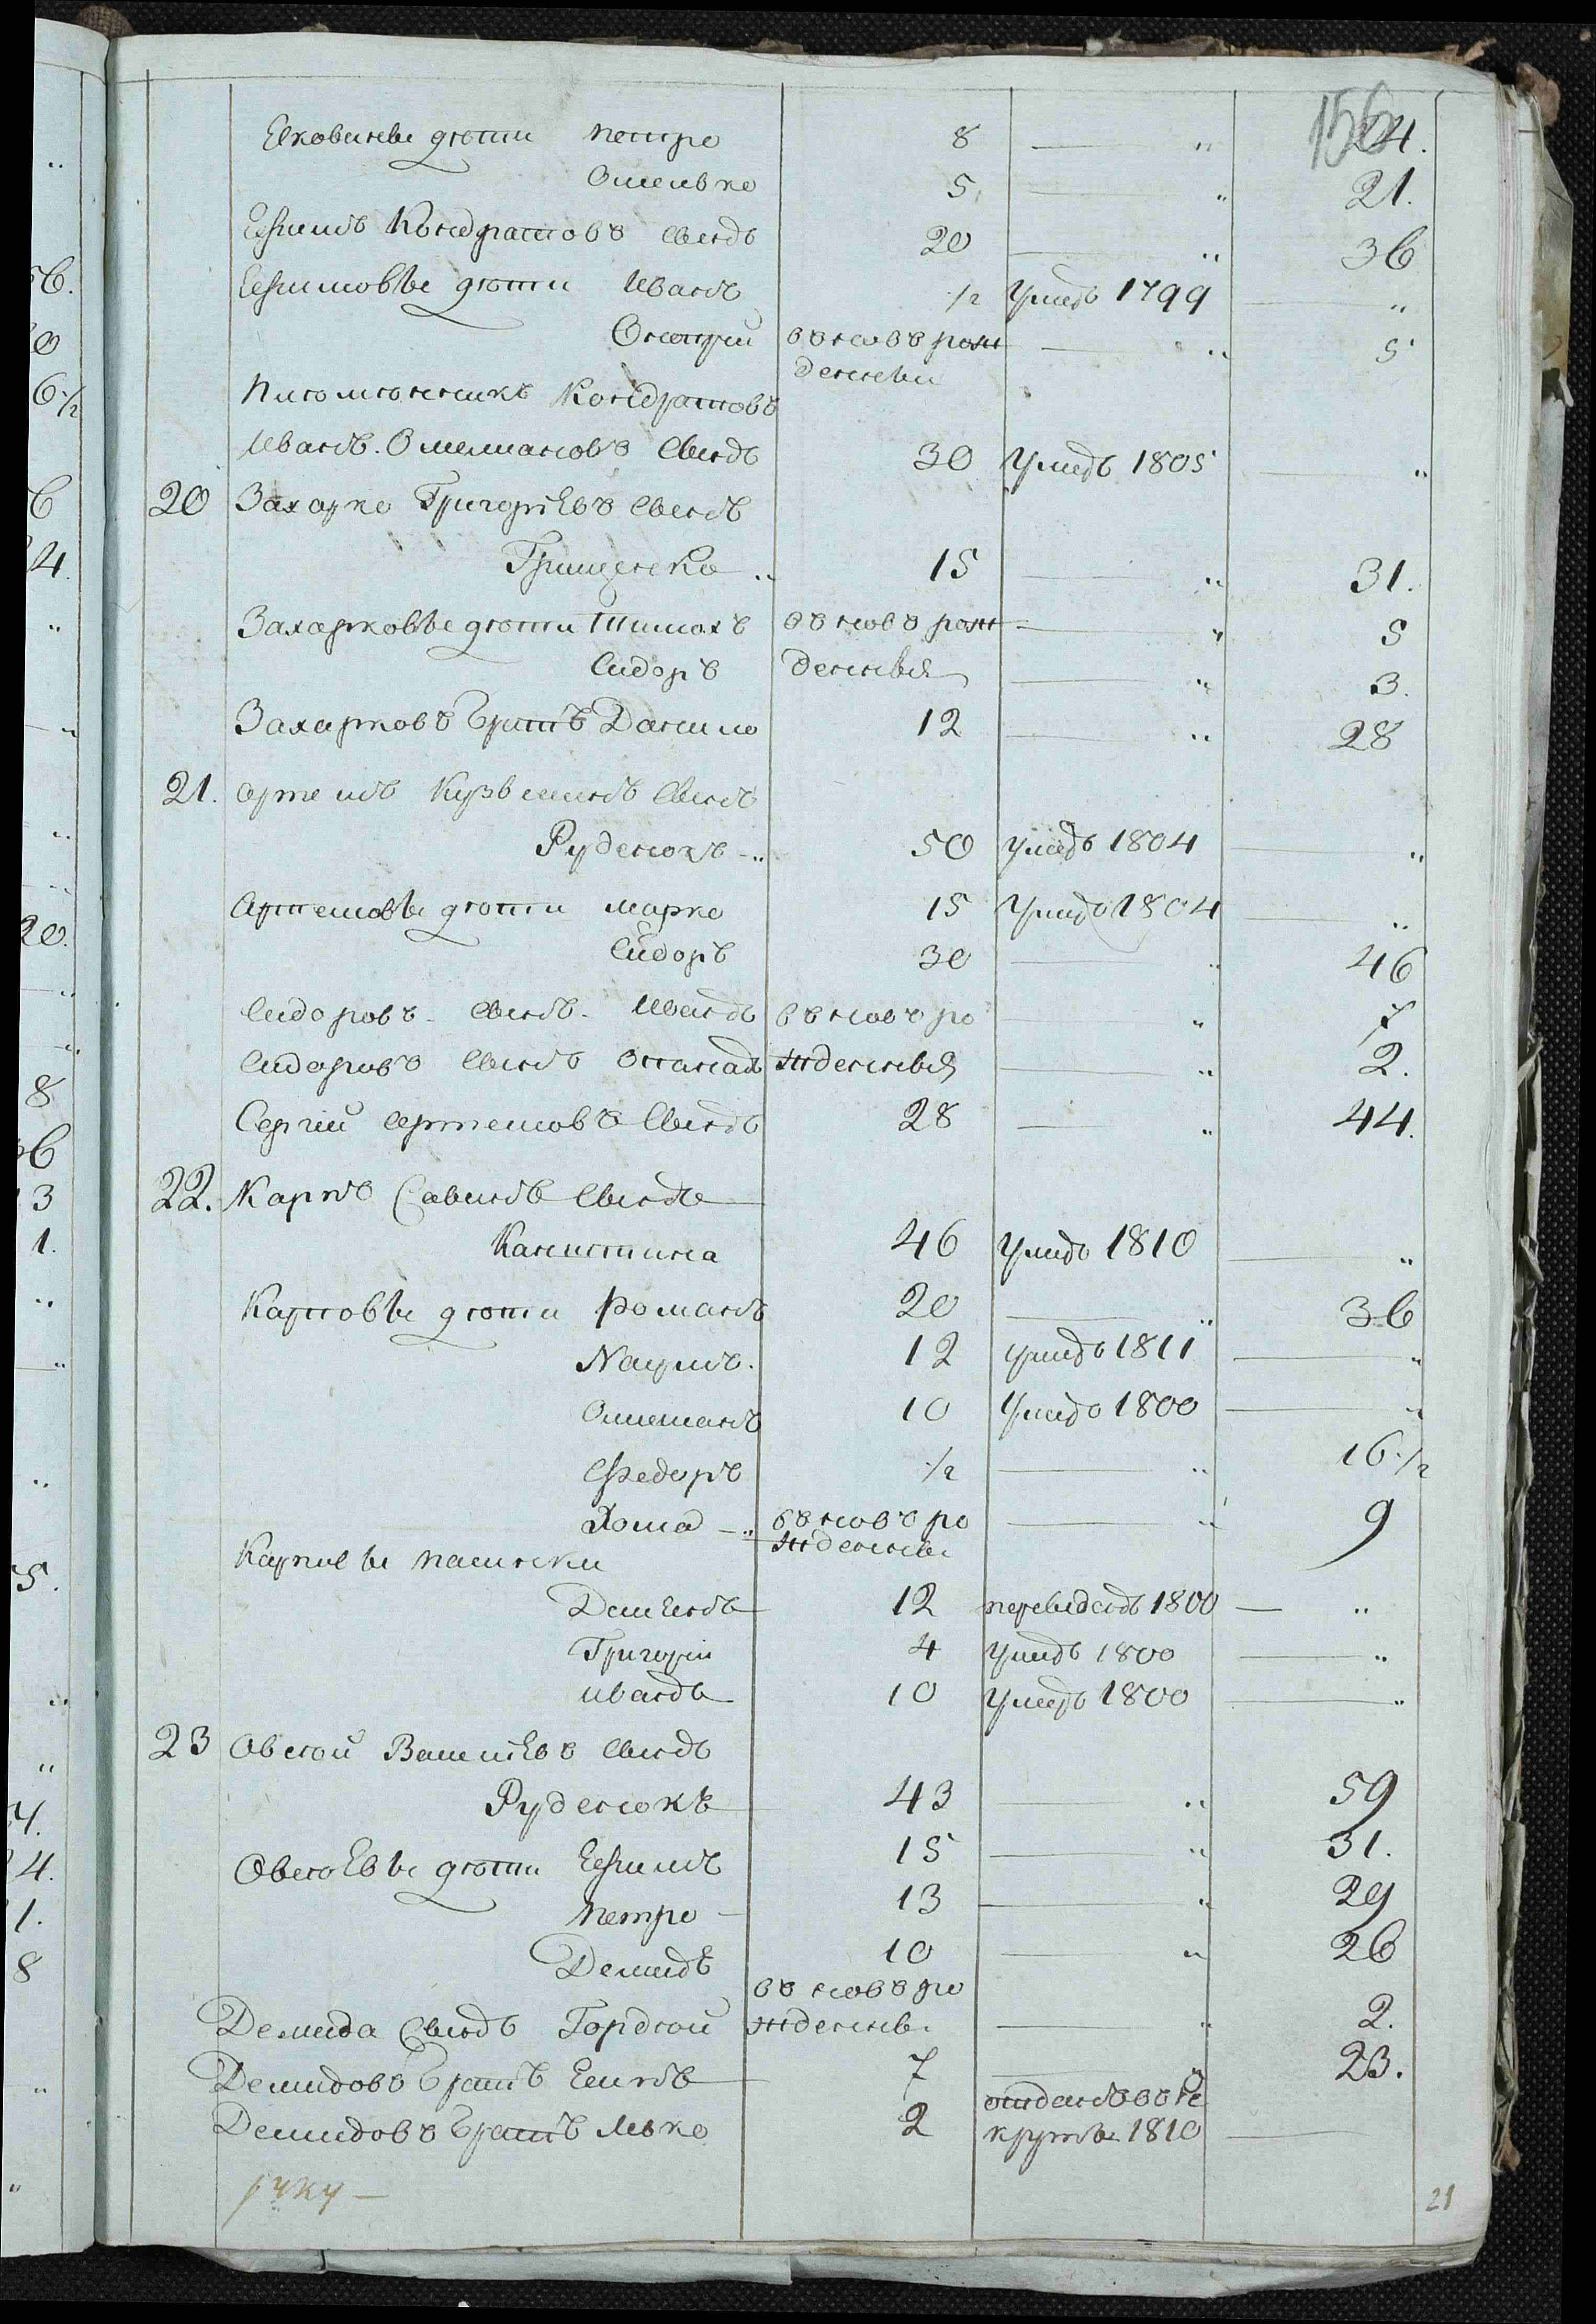 156
Ековыевы дѣти Петро 8 — " 24.
Омелько 5 — " 21.
Ефимъ Кондратовъ сынъ 20 — " 36
Ефимовы дѣти Иванъ ½ умеръ 1799 — "
Онопрій въ новъ рож — " 5
денны
Племѣнникъ Кондратовъ
Иванъ Омеляновъ сынъ 30 умеръ 1805 — "
20 Захарко Григоріевъ сынъ
Грищенко " 15 — " 31.
Захарковы дѣти Тимохъ въ новъ рож — " 5
Сидоръ денныя — " 3.
Захарковъ братъ Данило 12 — " 28
21. Артемъ Кузьминъ сынъ
Руденокъ — " 50 умеръ 1804 — "
Артемовы дѣти Марко 15 умеръ 1804 — "
Сидоръ 30 — " 46
Сидоровъ сынъ Иванъ въ новъ ро — " 7
Сидоровъ сынъ Опанасъ жденныя — " 2.
Сергій Артемовъ сынъ 28 — " 44.
22. Карпъ Савинъ сынъ
46 умеръ 1810 — "
Карповы дѣти Романъ 20 — " 36
Наумъ. 12 умеръ 1811 — "
Омелянъ 10 умеръ 1800 — "
Федоръ ½ — " 16½
Хома — " въ новъ ро — " 9
жденны
Карповы пасынки
Деменъ 12 переведенъ 1800 — "
Григорій 4 умеръ 1800 — "
Иванъ 10 умеръ 1800 — "
23 Овсѣй Васильевъ сынъ
Руденокъ 43 — " 59
Овсѣевы дѣти Ефимъ 15 — " 31.
Петро — 13 — " 29
Демидъ 10 — " 26
въ новъ ро
Демида сынъ Гордѣй жденны — " 2.
Демидовъ братъ 7 — " 23.
отданъ въ ре
Демидовъ братъ Лево 2 круты 1810 —
21